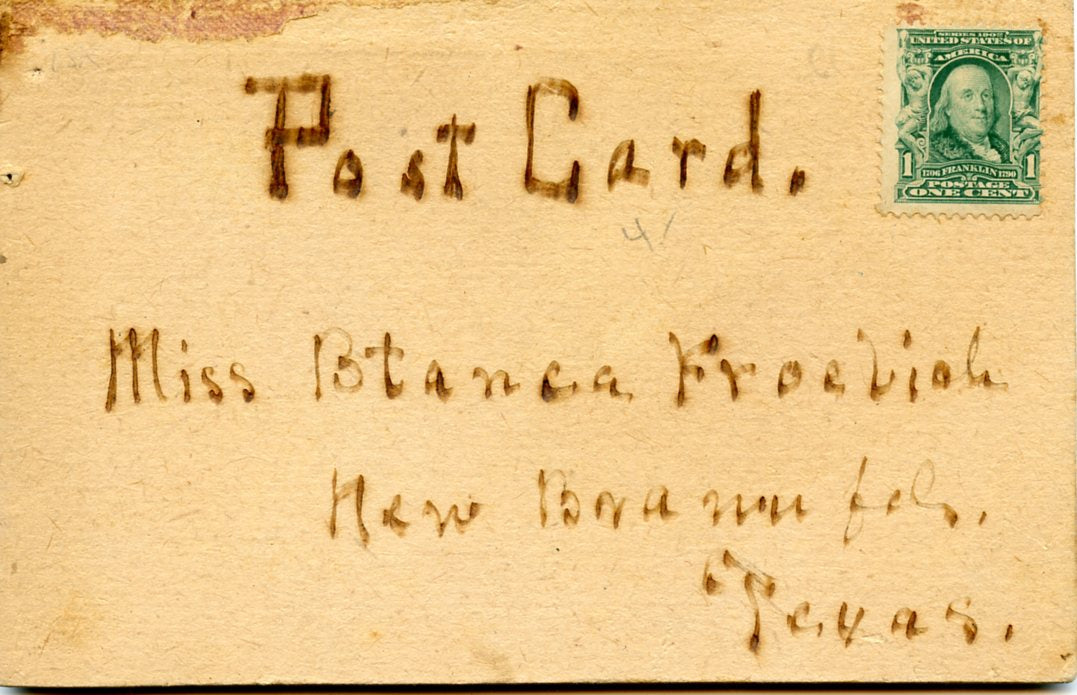 SERIES 1902
UNITED STATES OF
AMERICA
1 1
1706 FRANKLIN 1790
POSTAGE
ONE CENT
Post Card.
4
Miss Btanca Froelich
New Braunfels.
Texas.